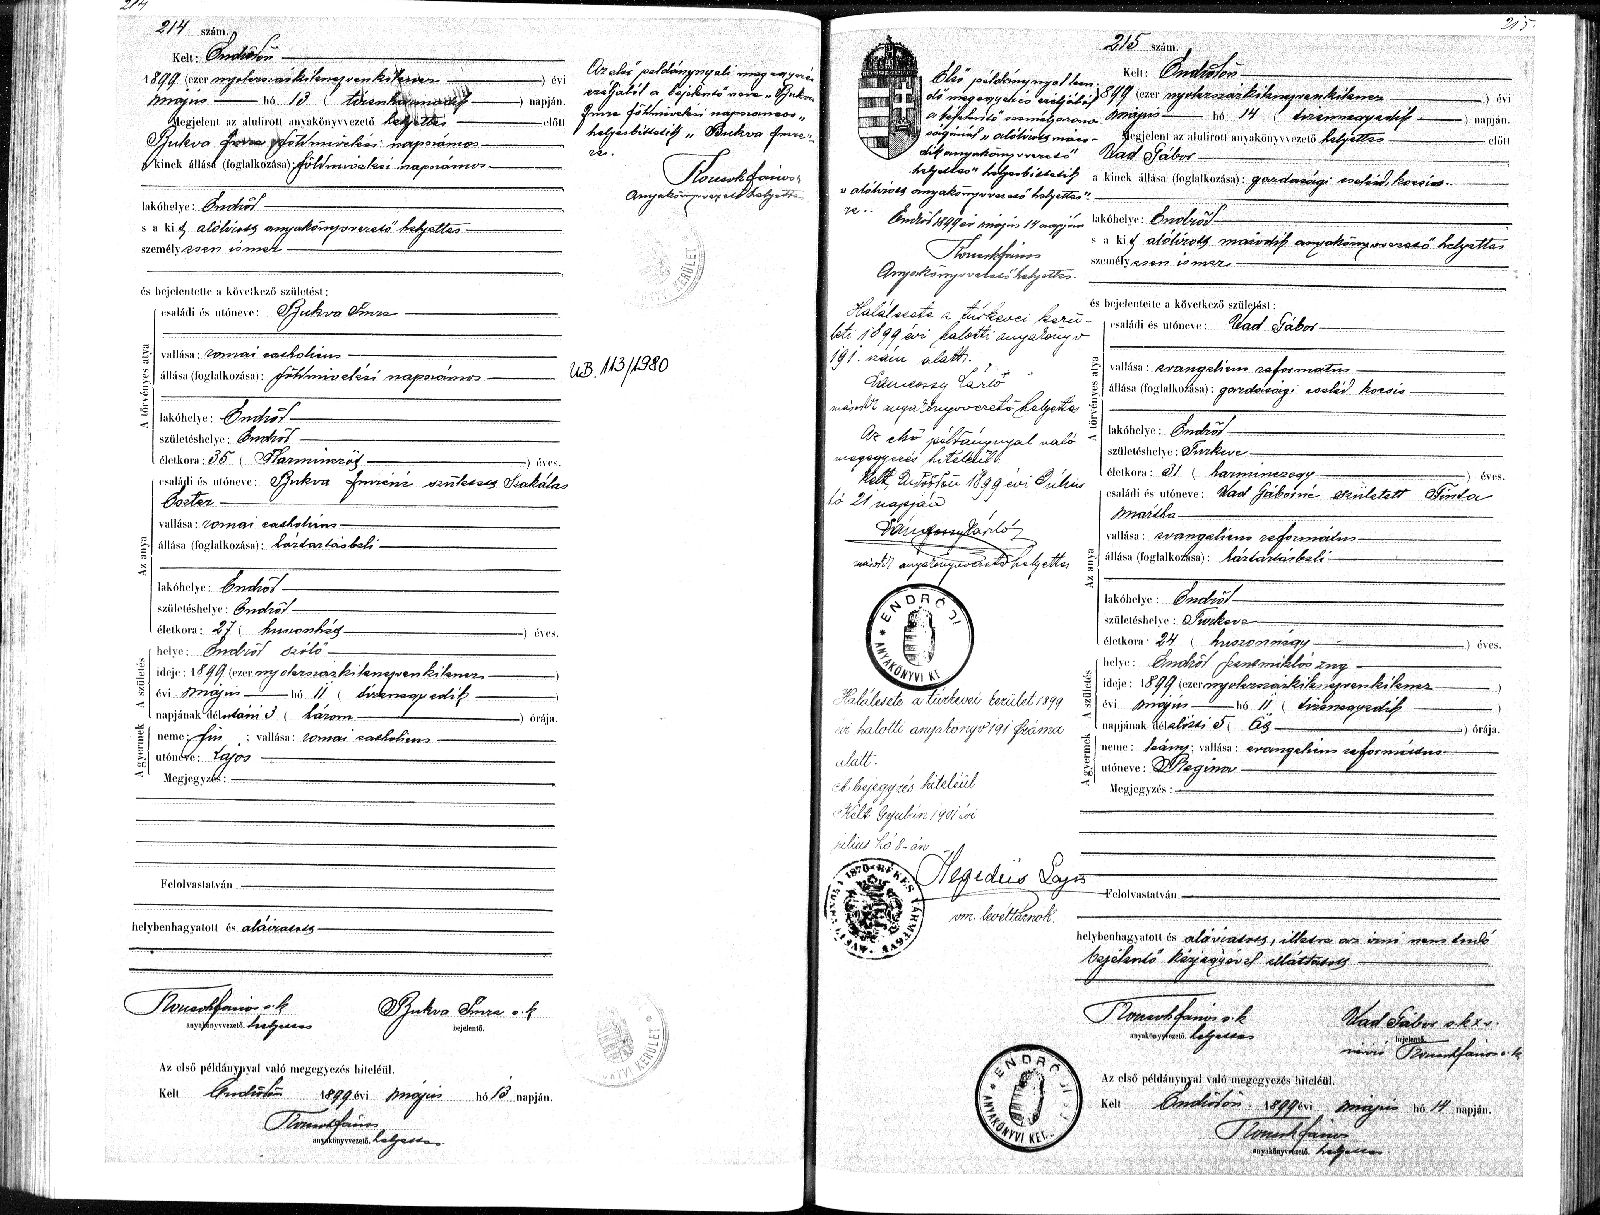 214
214 szám.
Kelt: Endrődön
1899 (ezer nyolczszázkilenczvenkilencz ) évi
május hó 13 ( tizenharmadik ) napján.
Megjelent az alulirott anyakönyvvezető helyettes előtt
Bukva Imre földmivelési napszámos
a kinek állása (foglalkozása): földmivelési napszámos
lakóhelye: Endrőd
s a kit alólirott anyakönyvvezető helyettes
személyesen ismer
és bejelentette a következő születést:
A törvényes atya
családi és utóneve: Bukva Imre
vallása: romai catholicus
állása (foglalkozása): földmivelési napszámos
lakóhelye: Endrőd
születéshelye: Endrőd
életkora: 35 ( Harminczöt ) éves.
Az anya
családi és utóneve: Bukva Imréné született Szakálas
Eszter
vallása: romai catholicus
állása (foglalkozása): háztartásbeli
lakóhelye: Endrőd
születéshelye: Endrőd
életkora: 27 ( huszonhét ) éves.
A születés
helye: Endrőd szőlő
ideje: 1899 (ezer nyolczszázkilenczvenkilencz )
évi május hó 11 ( tizenegyedik )
napjának délutáni 3 ( három ) órája.
A gyermek
neme: fiu ; vallása: romai catholicus
utóneve: Lajos
Megjegyzés:
Felolvastatván
helybenhagyatott és aláiratott
Koncsok János s. k
anyakönyvvezető. helyettes
Bukva Imre s. k
bejelentő.
Az első példánynyal való megegyezés hiteléül.
Kelt Endrődön 1899 évi május hó 13 napján.
Koncsok János
anyakönyvvezető. helyettes
Az első példánynyali megegyezés
czéljából a bejelentő neve „Bukva
Imre földmivelési napszámos"
helyesbittetik „Bukva Imre"
re.
Koncsok János
Anyakönyvvezető helyettes
KERÜLET
UB. 113/1980
ANYAKÖNYVI KERÜLET
215
215 szám.
Kelt: Endrődön
1899 (ezer nyolczszázkilenczvenkilencz ) évi
május hó 14 ( tizennegyedik ) napján.
Megjelent az alulirott anyakönyvvezető helyettes előtt
Vad Gábor
a kinek állása (foglalkozása): gazdasági cseléd, kocsis
lakóhelye: Endrőd
s a kit alólirott második anyakönyvvezető helyettes
személyesen ismer
és bejelentette a következő születést:
A törvényes atya
családi és utóneve: Vad Gábor
vallása: evangelicus reformatus
állása (foglalkozása): gazdasági cseléd kocsis
lakóhelye: Endrőd
születéshelye: Turkeve
életkora: 31 ( harminczegy ) éves.
Az anya
családi és utóneve: Vad Gáborné született Finta
Mártha
vallása: evangelicus református
állása (foglalkozása): háztartásbeli
lakóhelye: Endrőd
születéshelye: Turkeve
életkora: 24 ( huszonnégy ) éves.
A születés
helye: Endrőd Szentmiklós zug
ideje: 1899 (ezer nyolczszázkilenczvenkilencz )
évi május hó 11 ( tizenegyedik )
napjának délelőtti 5 ( öt ) órája.
A gyermek
neme: leány; vallása: evangelicus református
utóneve: Regina
Megjegyzés:
Felolvastatván
helybenhagyatott és aláiratott, illetve az irni nem tudó
bejelentő kézjegyével elláttatott
Koncsok János s. k
anyakönyvvezető. helyettes
Vad Gábor s. k x
bejelentő.
Koncsok János s. k
Az első példánynyal való megegyezés hiteléül.
Kelt Endrődön 1899 évi május hó 14 napján.
Koncsok János
anyakönyvvezető. helyettes
Első példánynyal leen-
dő megegyezés czéljából
a bejelentő személyazono-
ságánál „alólirott máso-
dik anyakönyvvezető
helyettes" helyesbittetik
„alólirott anyakönyvvezető helyettes"
re.
Endrőd 1899 év május 14 napján
Koncsok János
Anyakönyvvezető helyettes.
Halálesete a túrkevei kerü-
leti 1899 évi halotti anyakönyv
191. szám alatt.
Dánossy László
másodk anyakönyvvezető helyettes
Az első példánynyal való
megegyezés hiteléül.
Kelt Endrődön 1899 évi Július
hó 21 napján
másodk anyakönyvvezető helyettes
ENDRŐDI
ANYAKÖNYVI K
Halálesete a túrkevei kerület 1899
évi halotti anyakönyv 191 száma
alatt.
E bejegyzés hiteléül
Kelt Gyulán 1901 évi
július hó 8-án
Hegedüs Lajos
vm. levéltárnok.
1876 BÉKÉS VÁRMEGYE
ENDRŐDI
ANYAKÖNYVI KER.